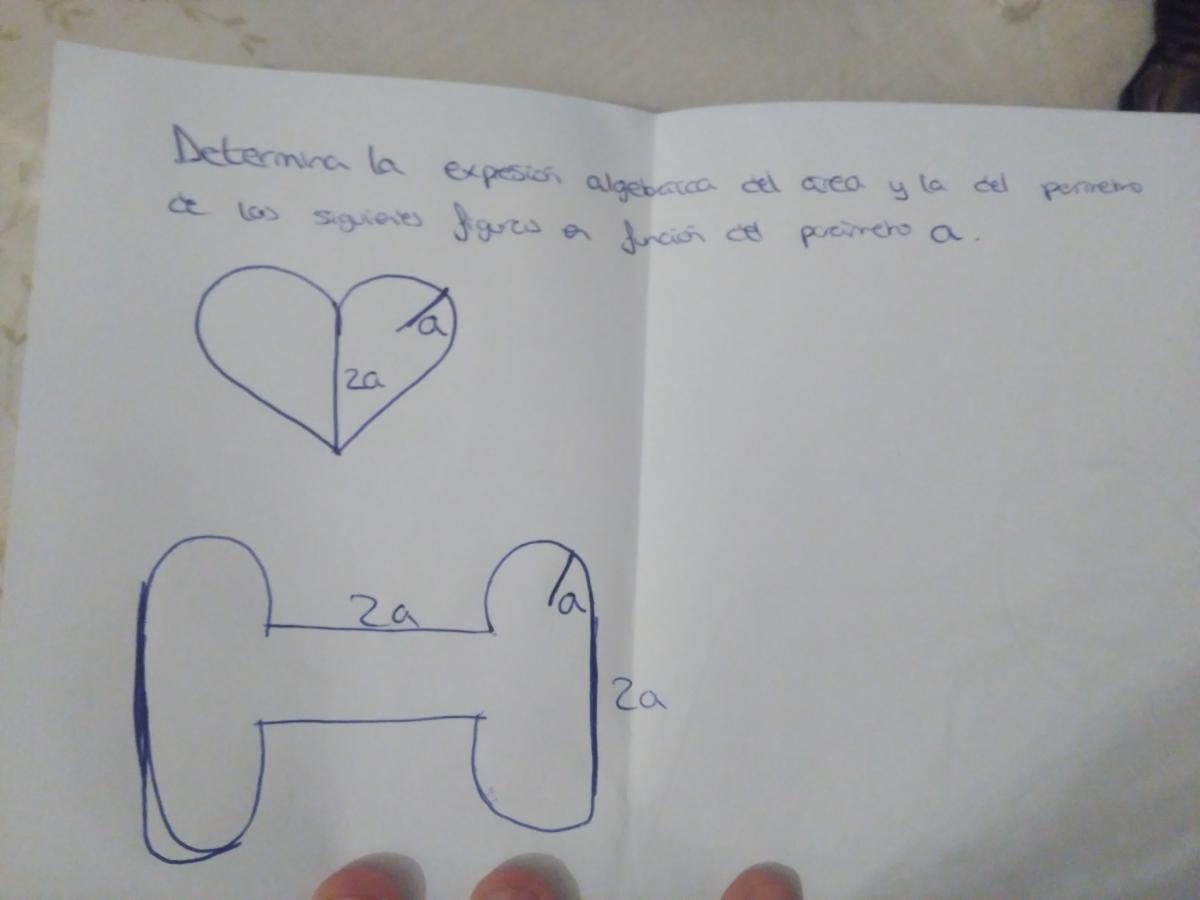 Determina la expesión algebraica del area y la del perimetro
de las siguientes figuras en función del parámetro a.
a
2a
2a
a
2a